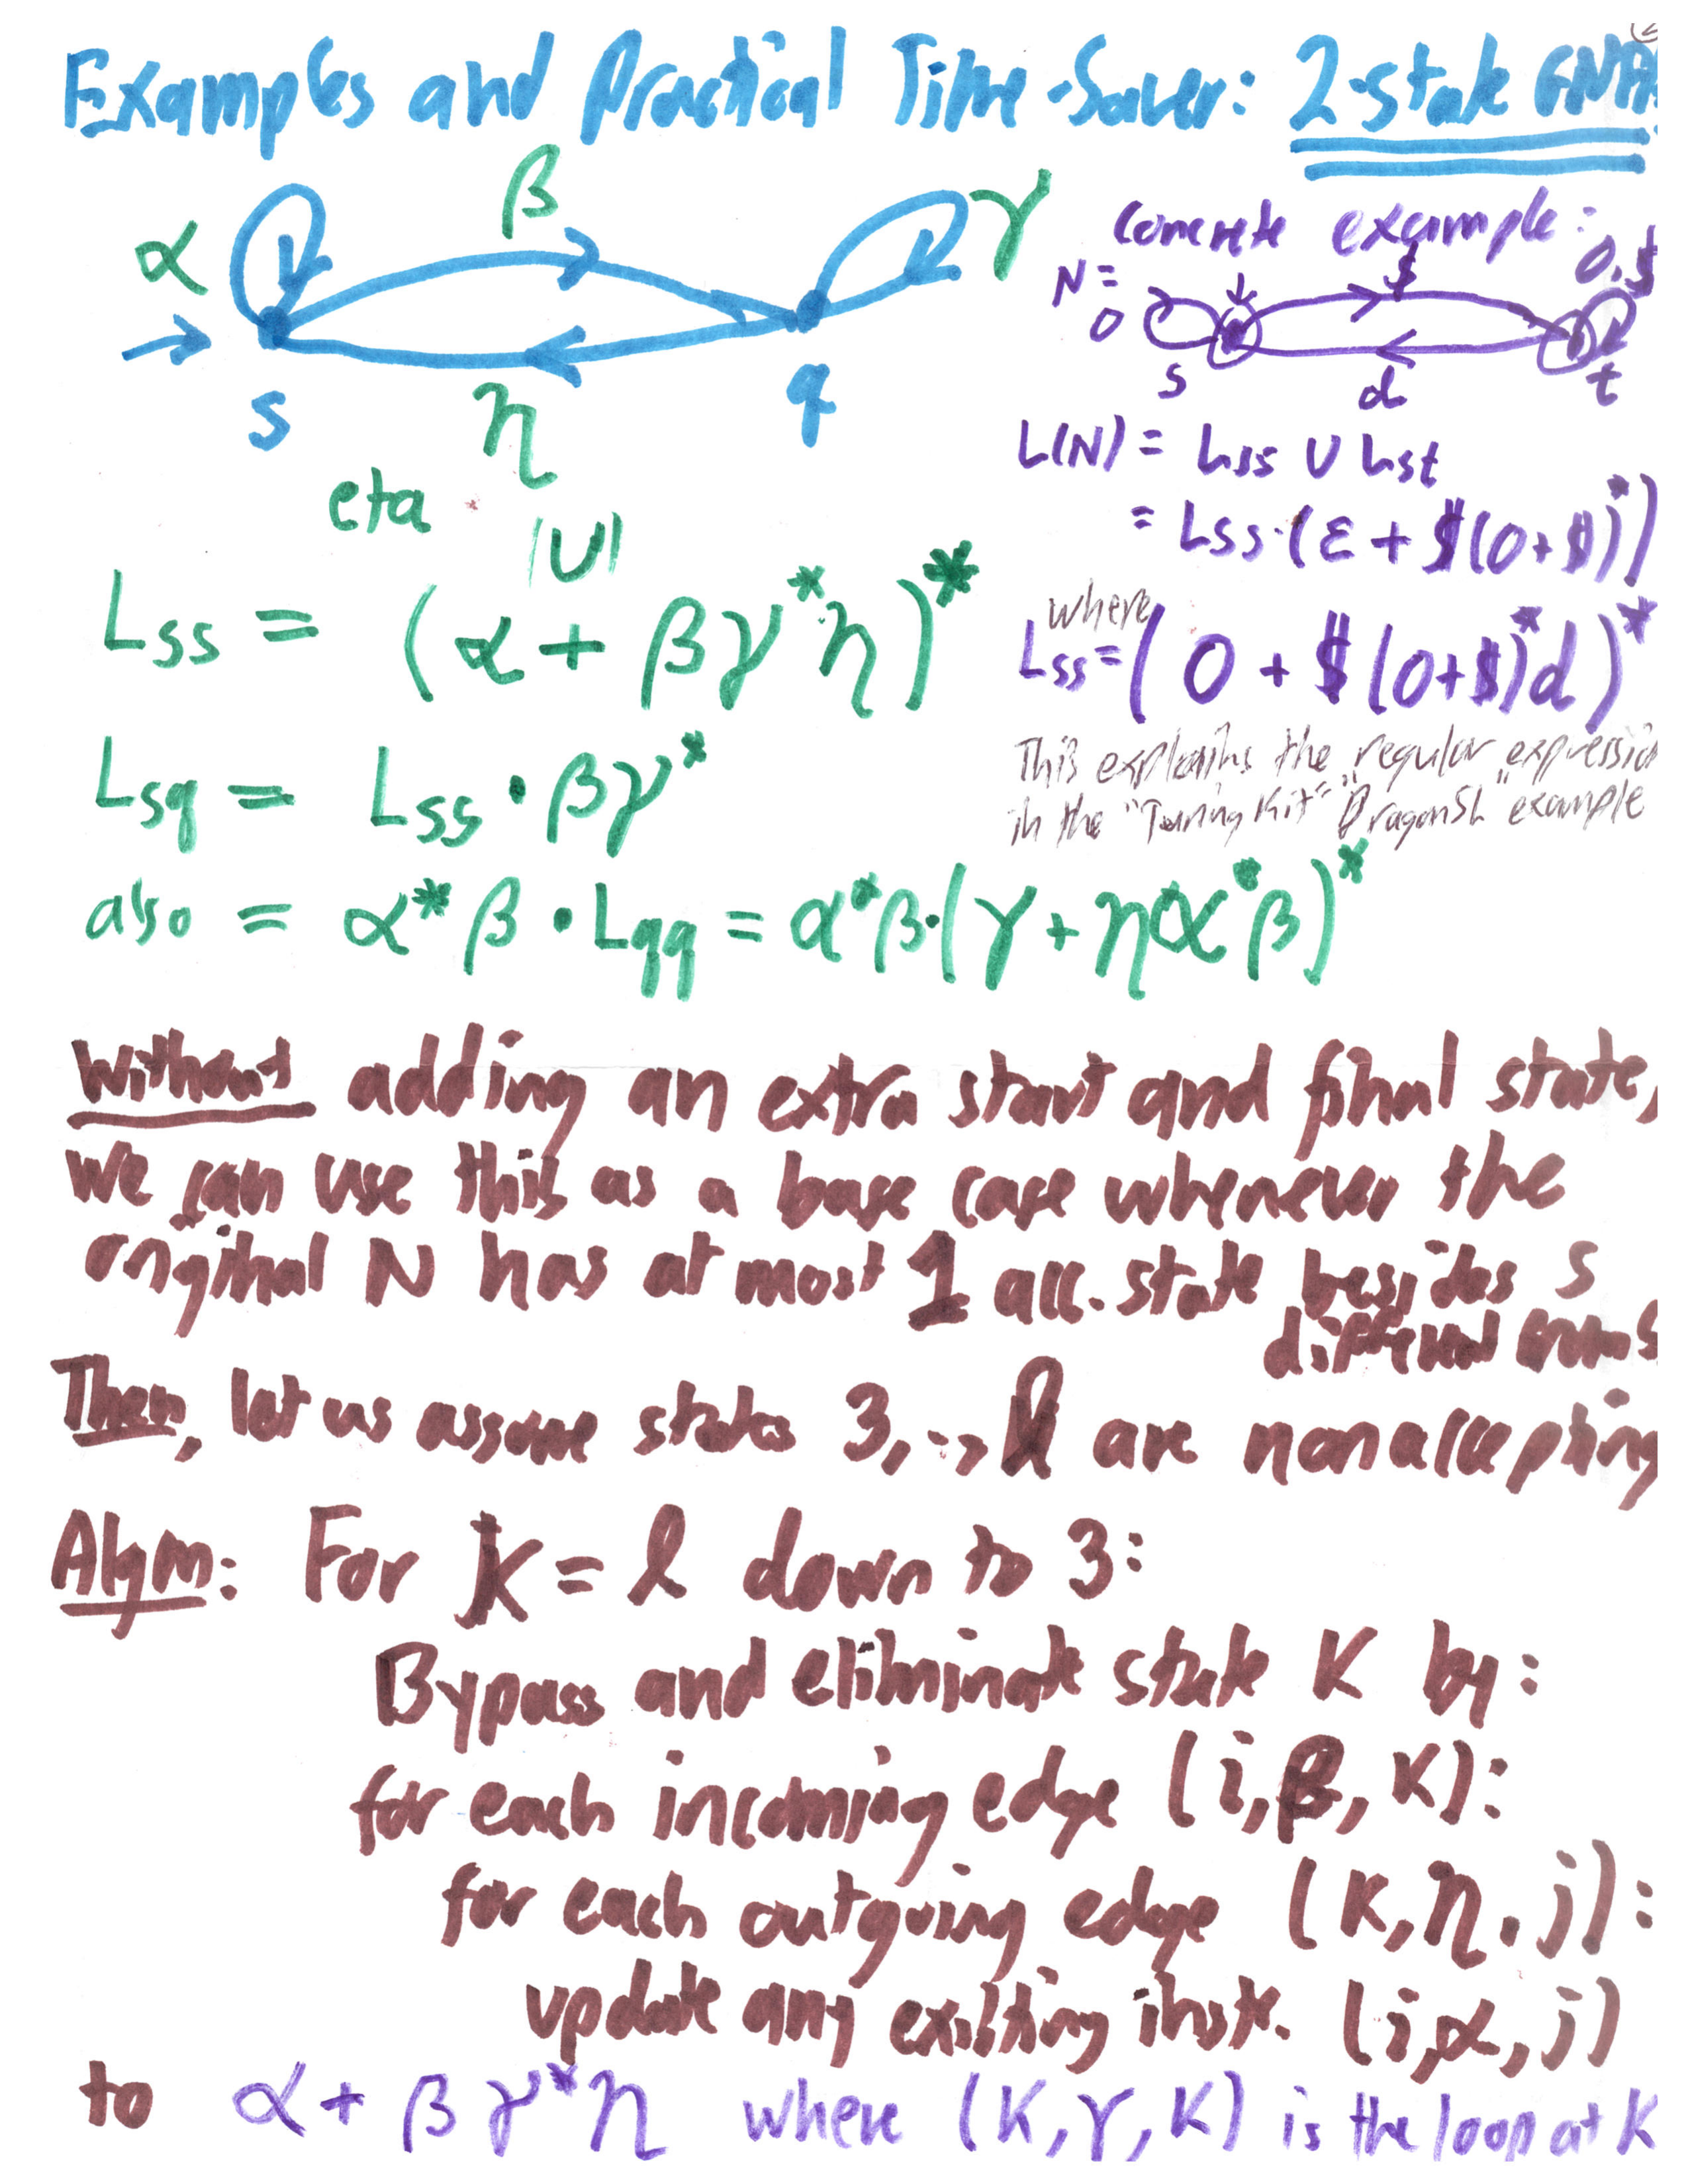 Examples and Practical Time-Saver: 2-state GNFA
α β γ
s η q
eta
concrete example:
N = 0 $ 0,$
s d t
L(N) = Lss ∪ Lst
= Lss·(ε + $(0+$)*)
|U|
Lss = (α + βγ*η)*
where
Lss = (0 + $(0+$)*d)*
This explains the regular expression
in the "Turing Kit" "DragonSL" example
Lsq = Lss · βγ*
also = α*β · Lqq = α*β·(γ + ηα*β)*
Without adding an extra start and final state,
we can use this as a base case whenever the
original N has at most 1 acc. state besides s
different from s
Then, let us assume states 3,..,l are nonaccepting
Algm: For K = l down to 3:
Bypass and eliminate state K by:
for each incoming edge (i,β,K):
for each outgoing edge (K,η,j):
update any existing instr. (i,α,j)
to α + βγ*η where (K,γ,K) is the loop at K